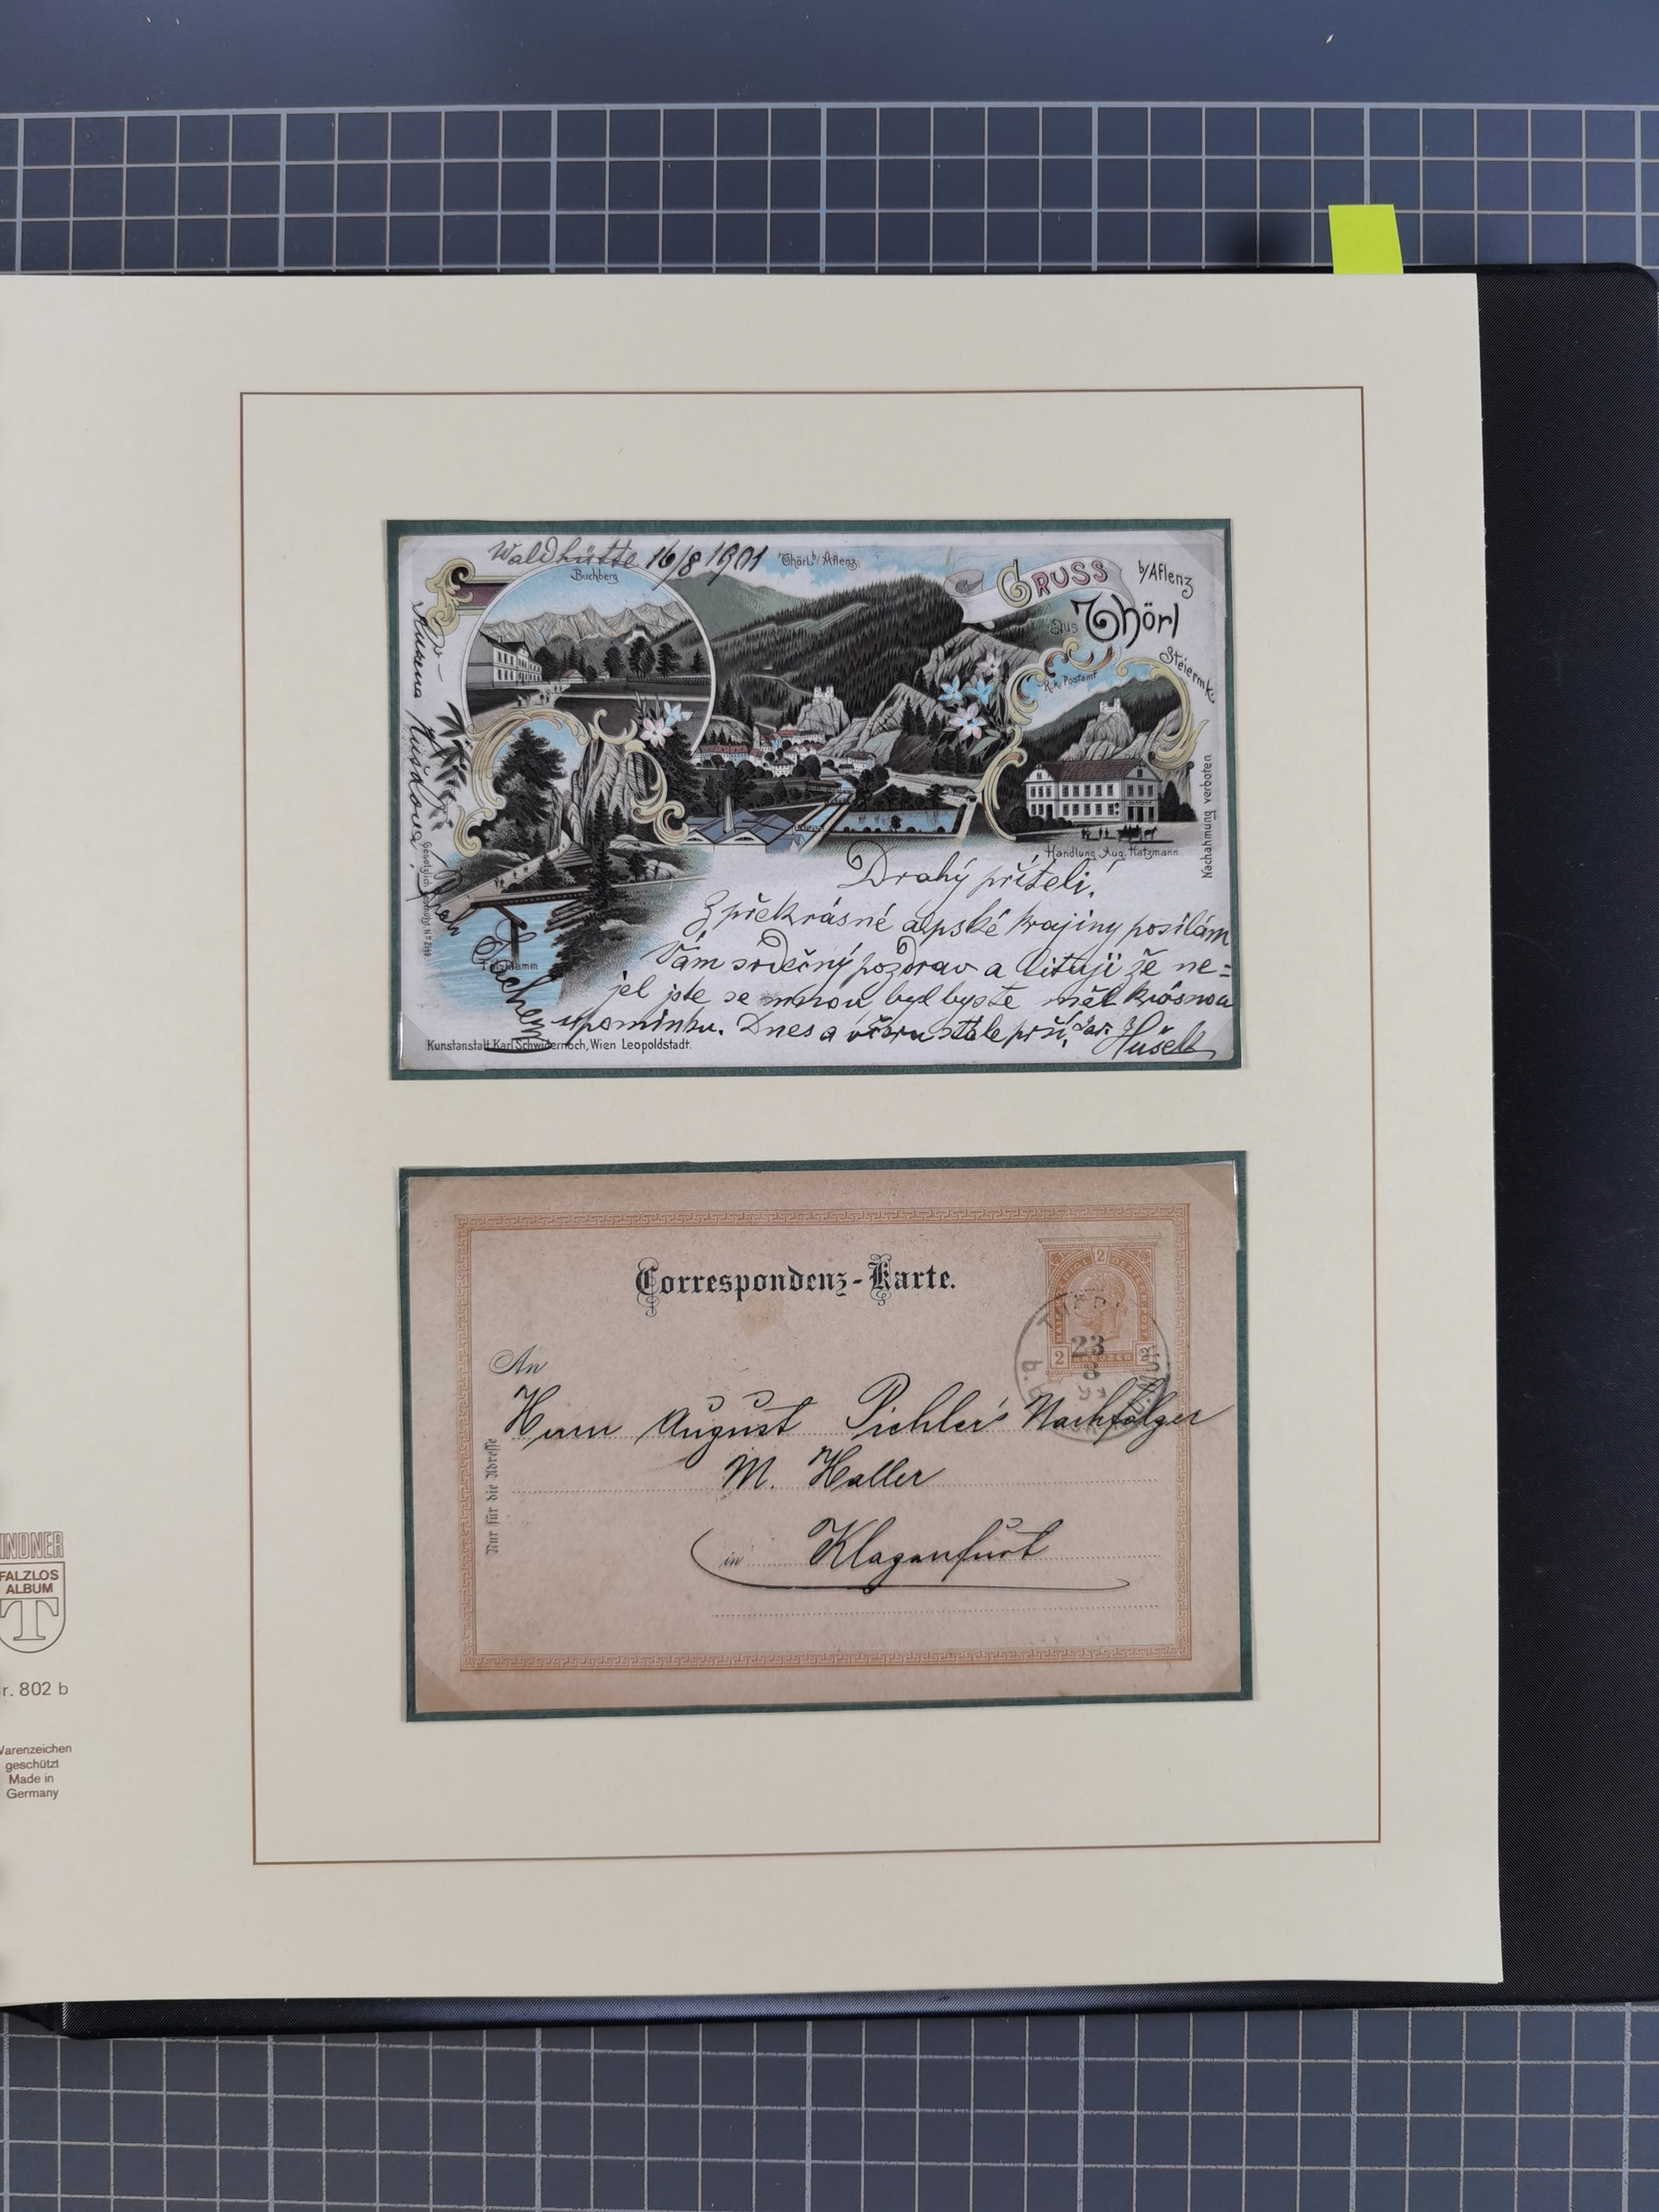 Waldhütte 16/8 1901
Buchberg
Thörl b/Aflenz
GRUSS
aus Thörl
b/Aflenz
Steiermk.
K.k. Postamt
Handlung Aug. Hatzmann
Nachahmung verboten
Drahý příteli!
Z překrásné alpské krajiny posílám
Vám srdečný pozdrav a lituji že ne=
jel jste se mnou, byl byste měl krásnou
upomínku. Dnes a včera stále prší,
Hušek
Kunstanstalt Karl Schwidernoch, Wien Leopoldstadt.
Correspondenz-Karte.
2
2
2
23
8
An
Herrn August Pichler's Nachfolger
M. Haller
in Klagenfurt
Nur für die Adresse
LINDNER
FALZLOS
ALBUM
T
Nr. 802 b
Warenzeichen
geschützt
Made in
Germany